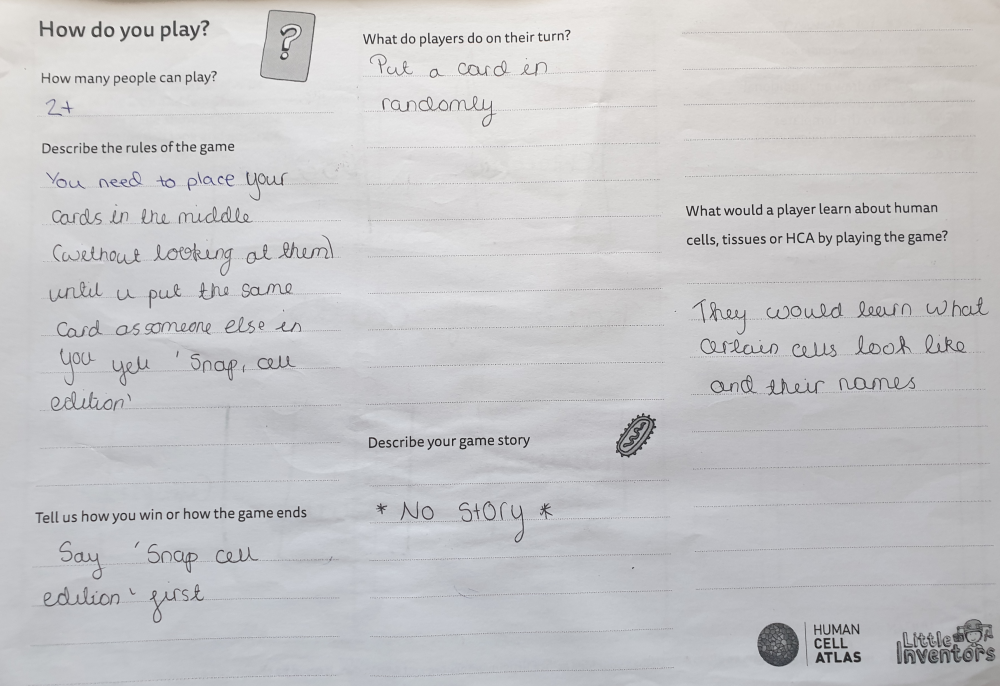 How do you play?
How many people can play?
2+
Describe the rules of the game
You need to place your
cards in the middle
(without looking at them)
until u put the same
card as someone else in
you yell 'Snap, cell
edition'
Tell us how you win or how the game ends
Say 'Snap cell
edition' first
What do players do on their turn?
Put a card in
randomly
Describe your game story
* No StOry *
What would a player learn about human
cells, tissues or HCA by playing the game?
They would learn what
certain cells look like
and their names
HUMAN
CELL
ATLAS
Little
Inventors